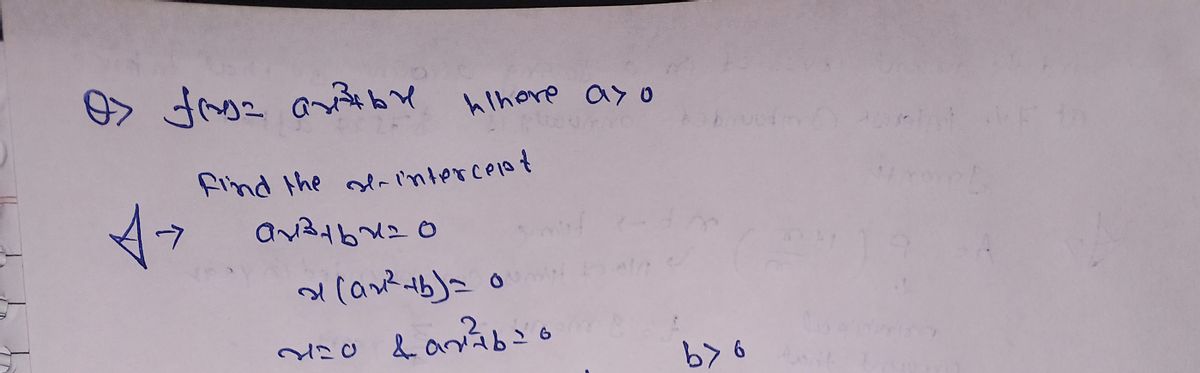 Q> f(x)= ax³+bx where a>0
Find the x-intercept
A→ ax³+bx=0
x(ax²+b)=0
x=0 & ax²+b=0 b>0